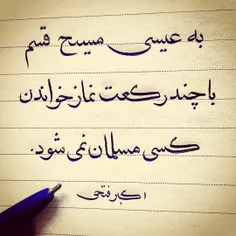 به عیسی مسیح قسم
با چند رکعت نماز خواندن
کسی مسلمان نمی شود.
اکبر فتحی